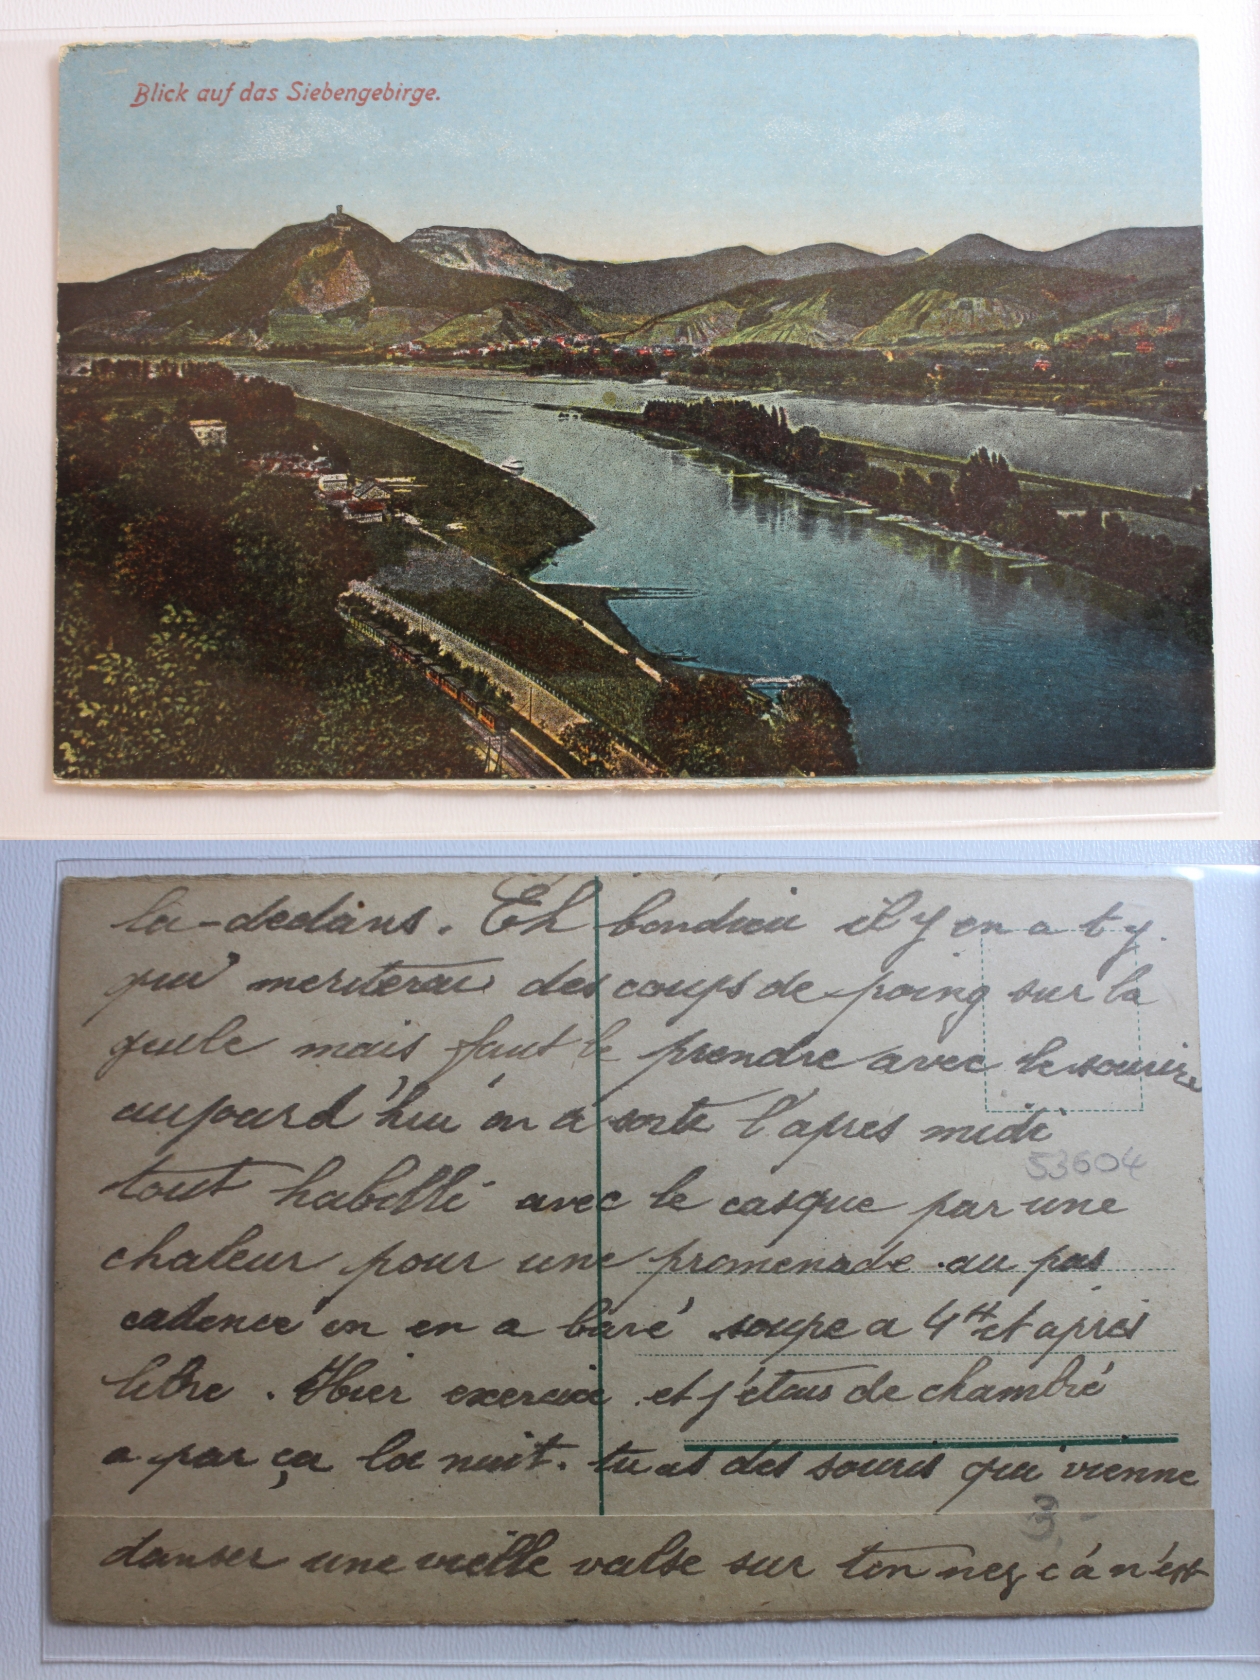 Blick auf das Siebengebirge.
la-dedans. Eh bondieu il y en a t y.
qui meriterai des coups de poing sur la
geule mais faut le prendre avec le sourire
aujourd'hui on a sorte l'apres midi
tout habillé avec le casque par une
chaleur pour une promenade au pas
cadencé on en a bavé soupe a 4H et après
libre. Hier exercice et j'étais de chambré
a par ça la nuit. tu as des souris qui vienne
danser une vieille valse sur ton nez c'a n'est
53604
3,-